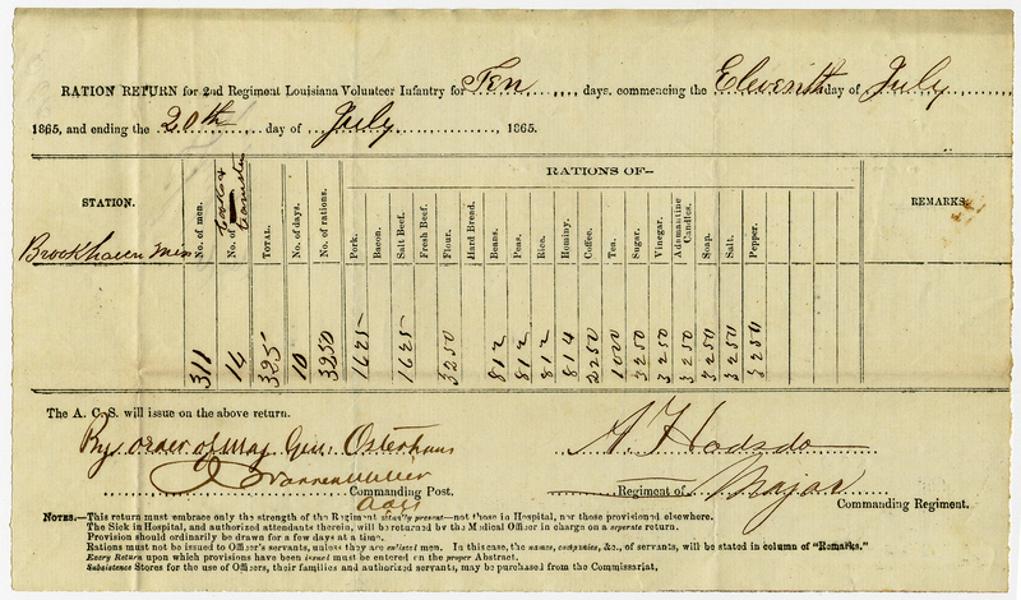 RATION RETURN for 2nd Regiment Louisiana Volunteer Infantry for Ten days, commencing the Eleventh day of July
1865, and ending the 20th day of July, 1865.
RATIONS OF--
STATION. No. of men. No. of Cooks & teamsters TOTAL. No. of days. No. of rations. Pork. Bacon. Salt Beef. Fresh Beef. Flour. Hard Bread. Beans. Peas. Rice. Hominy. Coffee. Tea. Sugar. Vinegar. Adamantine Candles. Soap. Salt. Pepper. REMARKS.
Brookhaven Miss
311 14 325 10 3250 1625 1625 3250 812 812 812 814 2250 1000 3250 3250 3250 3250 3250 3250
The A. C. S. will issue on the above return.
By order of Maj Gen: Osterhaus
A. F. Hodsdo
Commanding Post.
Regiment of Major
AAG
Commanding Regiment.
NOTES.—This return must embrace only the strength of the Regiment actually present—not those in Hospital, nor those provisioned elsewhere.
The Sick in Hospital, and authorized attendants therein, will be returned by the Medical Officer in charge on a seperate return.
Provision should ordinarily be drawn for a few days at a time.
Rations must not be issued to Officer's servants, unless they are enlisted men. In this case, the names, companies, &c., of servants, will be stated in column of "Remarks."
Every Return upon which provisions have been issued must be entered on the proper Abstract.
Subsistence Stores for the use of Officers, their families and authorized servants, may be purchased from the Commissariat.